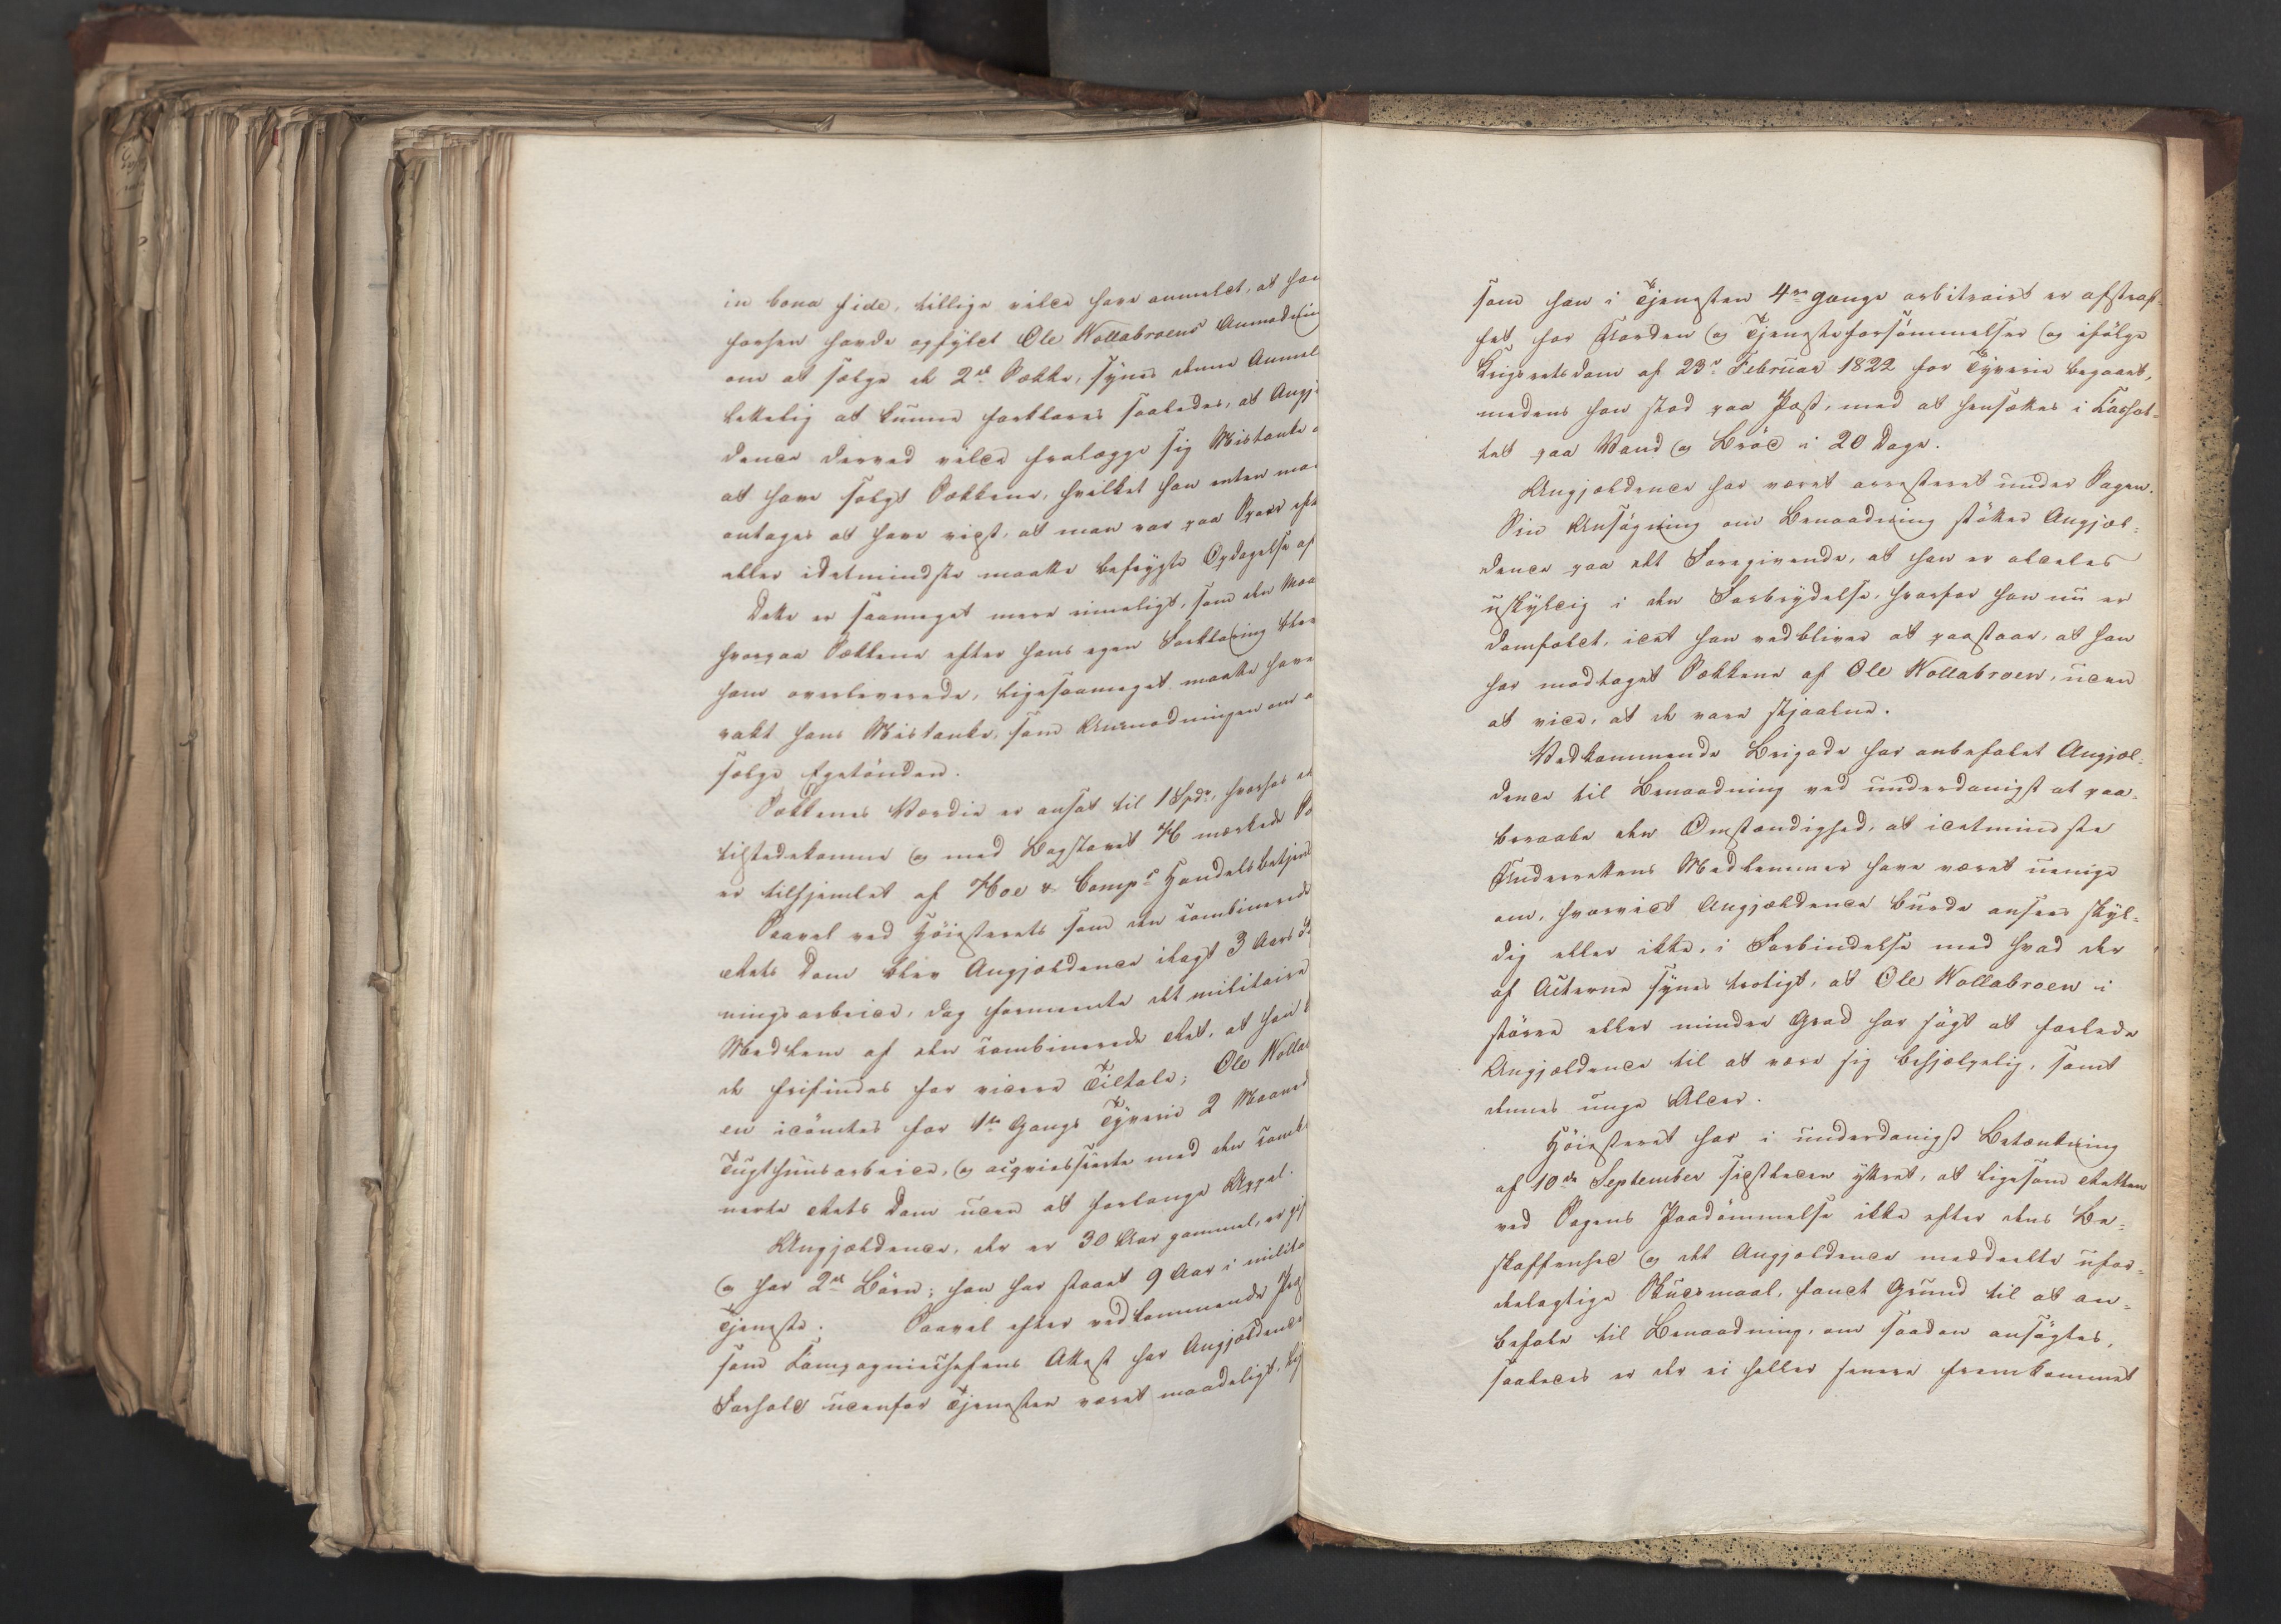 in bona fide, tillige vilde have anmeldt, at han
forhen havde opfyldt Ole Kollabroens Anmodning
om at sælge de 2de Sække, synes denne Anmel
lettelig at kunne forklares saaledes, at Angjæ
dende derved vilde fralægge sig Mistanke o
at have solgt Sækkene, hvilket han enten maa
antages at have vidst, at man var paa Spoer eft
eller idetmindste maatte befrygte Opdagelse af
Dette er saameget mere rimeligt, som den Maa
hvorpaa Sækkene efter hans egen Forklaring blev
ham overleverede, ligesaameget maatte have
vakt hans Mistanke, som Anmodningen om a
sælge Egetønden.
Sækkenes Værdie er ansat til 1 Spdr, hvorhos de
tilstedekomne og med Bogstavet H mærkede Sæ
er tilhjemlet af Hoe & Comps Handelsbetjent
Saavel ved Høiesterets som den combinerede
Rets Dom blev Angjældende ilagt 3 Aars
ningsarbeide, dog formeente det militaire
Medlem af den combinerede Ret, at han b
de frifindes for videre Tiltale; Ole Kollab
en idømtes for 1ste Gangs Tyverie 2 Maaned
Tugthuusarbeide, og acqviescerte med den comb
nerte Rets Dom uden at forlange Appel.
Angjældende, der er 30 Aar gammel, er gif
og har 2de Børn; han har staaet 9 Aar i milita
Tjeneste. Saavel efter vedkommende Præ
som Compagniechefens Attest har Angjældendes
Forhold udenfor Tjenesten været maadeligt, lig
som han i Tjenesten 4re gange arbitrairt er afstraf-
fet for Uorden og Tjenesteforsømmelser og ifølge
Krigsretsdom af 23de Februar 1822 for Tyverie begaaet,
medens han stod paa Post, med at hensættes i Cachot-
tet paa Vand og Brød i 20 Dage.
Angjældende har været arresteret under Sagen.
Sin Ansøgning om Benaadning støtter Angjæl-
dende paa det Foregivende, at han er aldeles
uskyldig i den Forbrydelse, hvorfor han nu er
domfældt, idet han vedbliver at paastaae, at han
har modtaget Sækkene af Ole Kollabroen, uden
at vide, at de vare stjaalne.
Vedkommende Brigade har anbefalet Angjæl-
dende til Benaadning ved underdanigst at paa-
beraabe den Omstændighed, at idetmindste
Underrettens Medlemmer have været uenige
om, hvorvidt Angjældende burde ansees skyl-
dig eller ikke, i Forbindelse med hvad der
af Acterne synes troligt, at Ole Kollabroen i
større eller mindre Grad har søgt at forlede
Angjældende til at være sig behjælpelig, samt
dennes unge Alder.
Høiesteret har i underdanigst Betænkning
af 10de September sidstleden yttret, at ligesom Retten
ved Sagens Paadømmelse ikke efter dens Be-
skaffenhed og det Angjældende meddeelte ufor-
deelagtige Skudsmaal, fandt Grund til at an-
befale til Benaadning, om saadan ansøgtes,
saaledes er der ei heller senere fremkommet